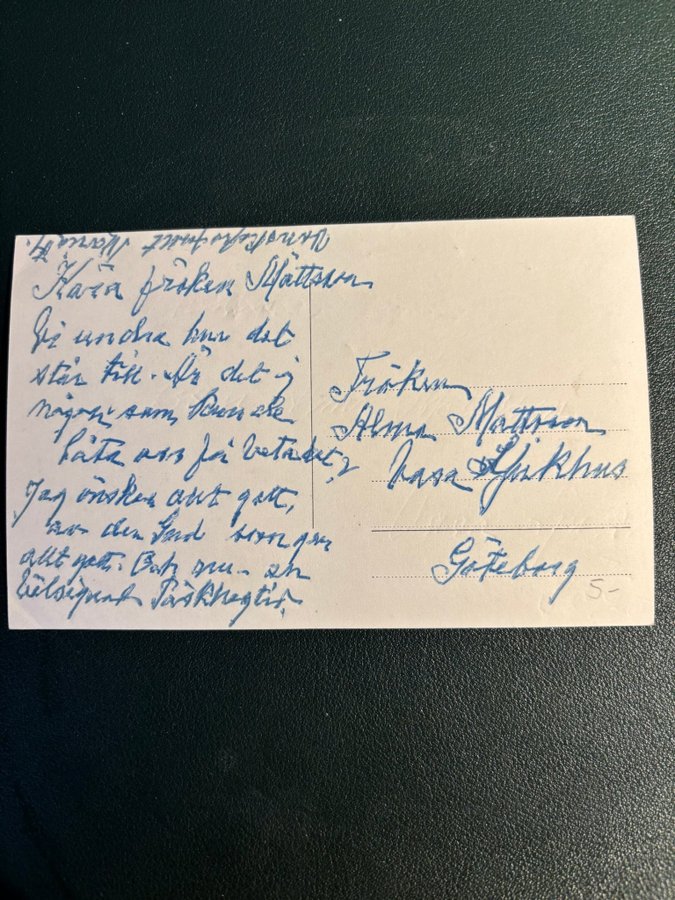 Kära fröken Mattsson
Vi undra hur det
står till. Är det ej
någon som kunde
låta oss få veta det?
Jag önskar allt gott,
av den Gud som ger
allt gott. Och nu en
välsignad Påskhögtid.
Fröken
Alma Mattsson
Vasa Sjukhus
Göteborg
5-